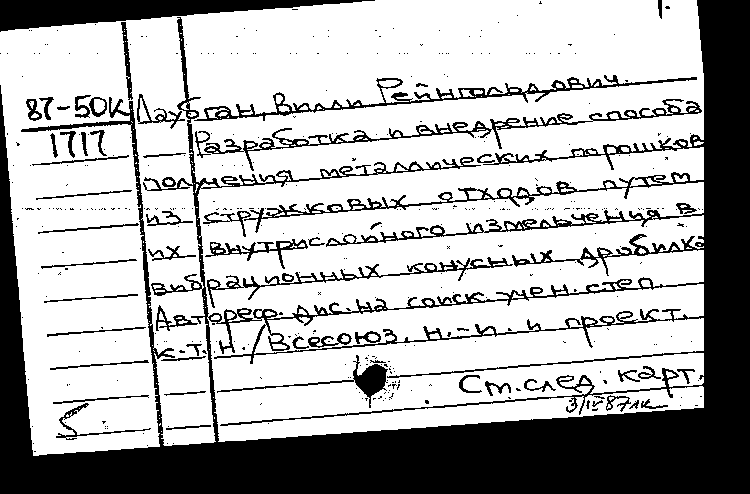 1.
87-50к Лаубган, Вилли Рейнгольдович.
1717 Разработка и внедрение способа
получения металлических порошков
из стружковых отходов путем
их внутрислойного измельчения в
вибрационных конусных дробилка
Автореф. дис. на соиск. учен. степ.
к.т.н. / Всесоюз. н.-и. и проект.
См. след. карт.
3/IV 87